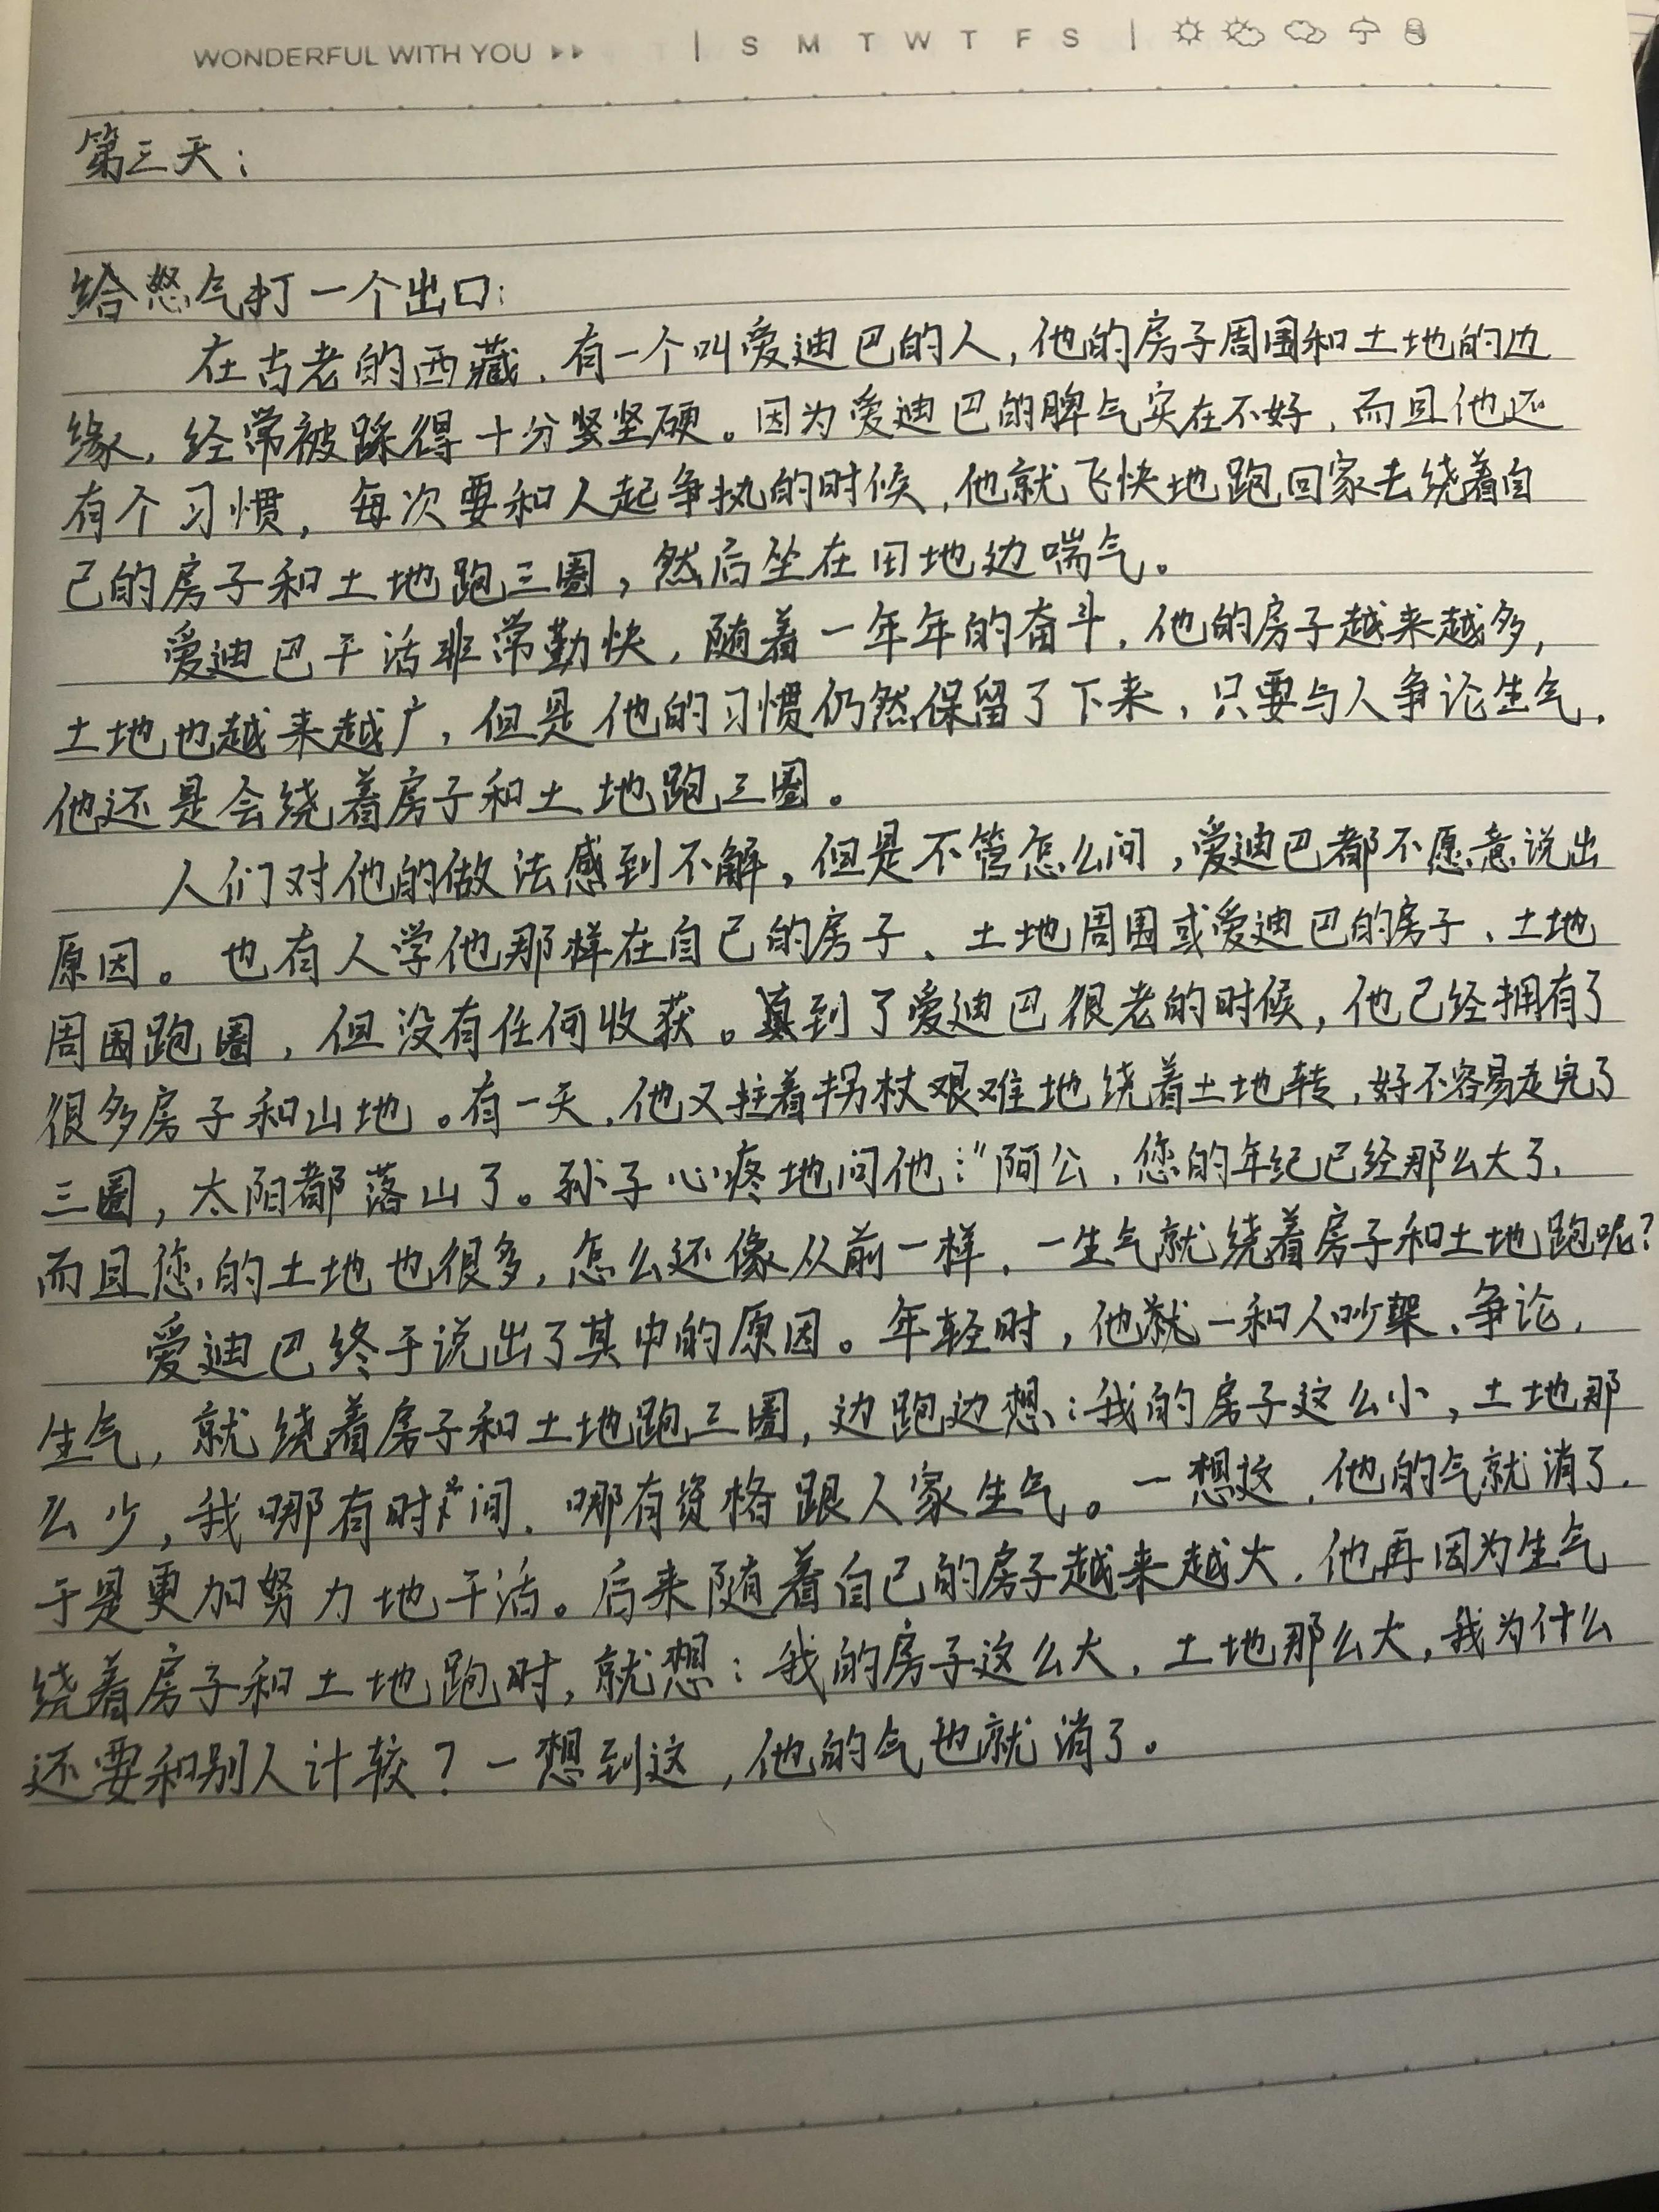 WONDERFUL WITH YOU | S M T W T F S |
第三天：
给怒气打一个出口：
在古老的西藏，有一个叫爱迪巴的人，他的房子周围和土地的边
缘，经常被踩得十分坚硬。因为爱迪巴的脾气实在不好，而且他还
有个习惯，每次要和人起争执的时候，他就飞快地跑回家去绕着自
己的房子和土地跑三圈，然后坐在田地边喘气。
爱迪巴干活非常勤快，随着一年年的奋斗，他的房子越来越多，
土地也越来越广，但是他的习惯仍然保留了下来，只要与人争论生气，
他还是会绕着房子和土地跑三圈。
人们对他的做法感到不解，但是不管怎么问，爱迪巴都不愿意说出
原因。也有人学他那样在自己的房子、土地周围或爱迪巴的房子、土地
周围跑圈，但没有任何收获。直到了爱迪巴很老的时候，他已经拥有了
很多房子和山地。有一天，他又拄着拐杖艰难地绕着土地转，好不容易走完了
三圈，太阳都落山了。孙子心疼地问他：“阿公，您的年纪已经那么大了，
而且您的土地也很多，怎么还像从前一样，一生气就绕着房子和土地跑呢？
爱迪巴终于说出了其中的原因。年轻时，他就一和人吵架、争论，
生气，就绕着房子和土地跑三圈，边跑边想：我的房子这么小，土地那
么少，我哪有时间，哪有资格跟人家生气。一想这，他的气就消了，
于是更加努力地干活。后来随着自己的房子越来越大，他再因为生气
绕着房子和土地跑时，就想：我的房子这么大，土地那么大，我为什么
还要和别人计较？一想到这，他的气也就消了。